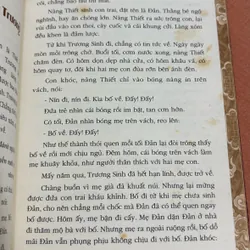 Nàng Thiết sinh con trai, đặt tên là Đản. Thằng bé ngộ
nghĩnh, hay ăn chóng lớn. Nàng Thiết ra sức trông con, lại
vùi đầu vào con thoi, cày cuốc và cái khung cửi. Lòng sớm
khuya đều lo lắng.
Từ khi Trương Sinh đi, chẳng có tin tức về. Ngày ngày
mòn mỏi trông thấy. Buổi tối, cơm nước xong, nàng Thiết
ôm con. Có hôm dọn dẹp nhà cửa, có hôm khâu vá, có
hôm quay tơ, đôi khi hai mẹ con đùa cợt bên ánh đèn.
Con khóc, nàng Thiết chỉ vào bóng nàng in trên
vách, nói:
- Nín đi, nín đi. Kìa bố về. Đấy! Đấy!
Đứa trẻ nhìn cái bóng rồi im bặt, tan cơn hờn.
Có tối, Đản nhìn bóng mẹ trên vách, reo lên:
- Bố về. Đấy! Đấy!
Như thế thành thói quen mỗi tối Đản lại đòi trông thấy
bố về rồi mới chịu ngủ. Đêm hôm, cái bóng trên vách làm
mẹ khuây khỏa, như người thân thiết với hai mẹ con.
Mấy năm qua, Trương Sinh đã hết hạn lính, được trở về.
Chàng buồn vì mẹ già đã khuất núi. Nhưng lại mừng
được đứa con trai kháu khỉnh. Bố đi từ khi mẹ chưa sinh
Đản, cho nên chẳng mới mẻ để Đản đã có thể quen ngay
bố được. Hôm ấy, mẹ bận đi cấy. Mẹ Đản dặn Đản ở nhà
đi thăm mộ bà với bố. Nhưng mẹ ra ngoài ruộng rồi, bố dỗ
mãi Đản vẫn phụng phịu không chịu đi với bố. Đản khóc: